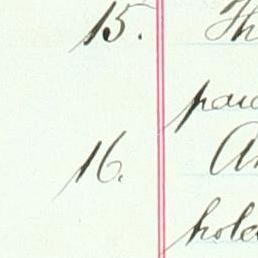 15. Th
pai
16. An
hold